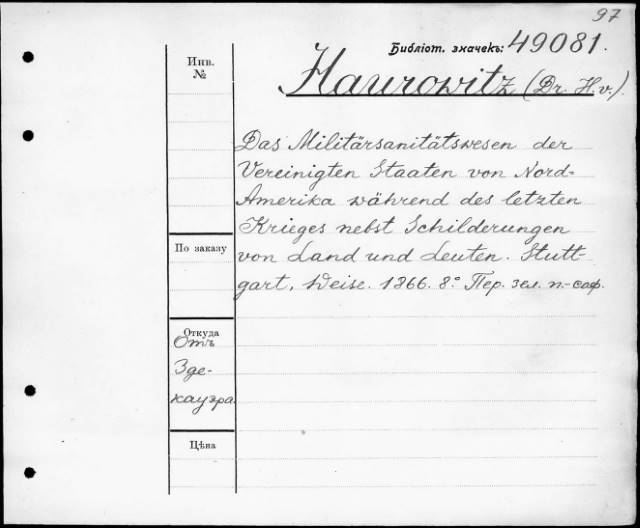 97
Библіот. значекъ: 49081.
Инв.
№
Haurowitz (Dr. H. v.)
Das Militärsanitätswesen der
Vereinigten Staaten von Nord-
Amerika während des letzten
Krieges nebst Schilderungen
von Land und Leuten. Stutt-
gart, Weise. 1866. 8.° Пер. зел. п.-саф.
По заказу
Откуда
Отъ
Зде-
кауэра.
Цѣна